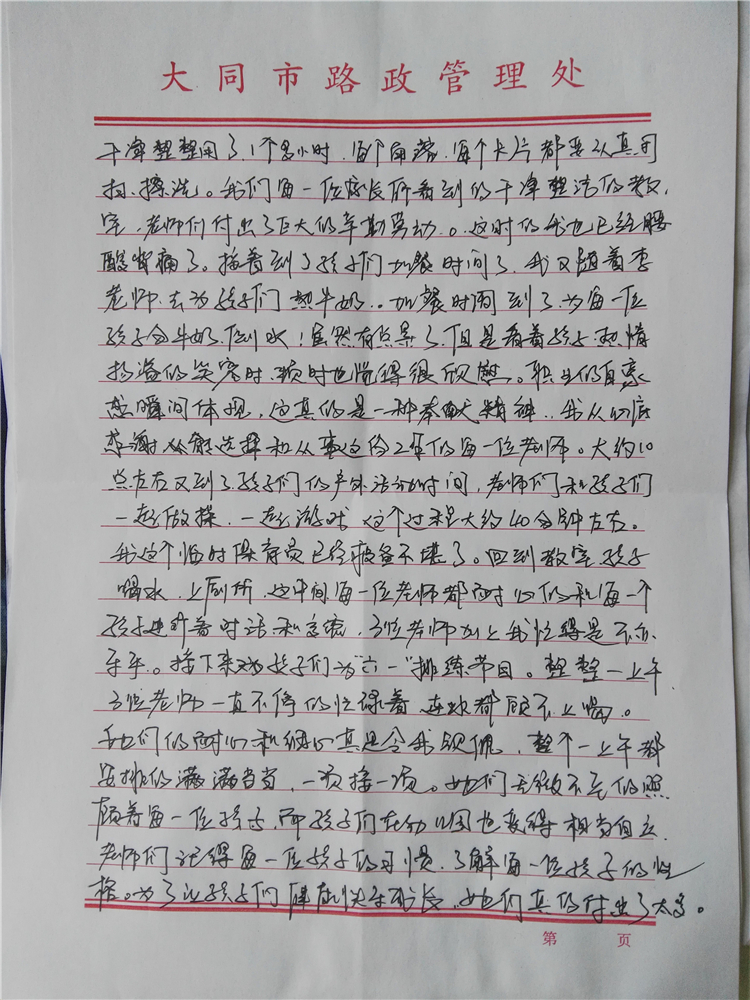 大同市路政管理处
干净整整用了1个多小时,每个角落,每个卡片都要认真用
扫,擦洗。我们每一位家长所看到的干净整洁的教
室,老师们付出了巨大的辛勤劳动。这时的我也已经腰
酸背痛了。接着到了孩子们加餐时间了,我又随着李
老师去为孩子们热牛奶..加餐时间到了,为每一位
孩子分牛奶,倒水!虽然有点累了,但是看着孩子热情
洋溢的笑容时,顿时也觉得很欣慰。职业的自豪
感瞬间体现,这真的是一种奉献精神..我从心底
感谢从能选择和从事这份工作的每一位老师。大约10
点左右又到了孩子们的户外活动时间,老师们和孩子们
一起做操,一起游戏 这个过程大约40分钟左右。
我这个临时保育员已经疲惫不堪了。回到教室,孩子
喝水,上厕所,这中间每一位老师都耐心的和每一个
孩子进行着对话和交流,三位老师加上我忙得是不亦
乐乎。接下来又为孩子们为"六一"排练节目。整整一上午
三位老师一直不停的忙碌着 连水都顾不上喝。
她们的耐心和细心真是令我钦佩,整个一上午都
安排的满满当当,一项接一项。她们无微不至的照
顾着每一位孩子,而孩子们在幼儿园也变得相当自立.
老师们记得每一位孩子的习惯,了解每一位孩子的性
格。为了让孩子们健康快乐成长,她们真的付出了太多。
第 页